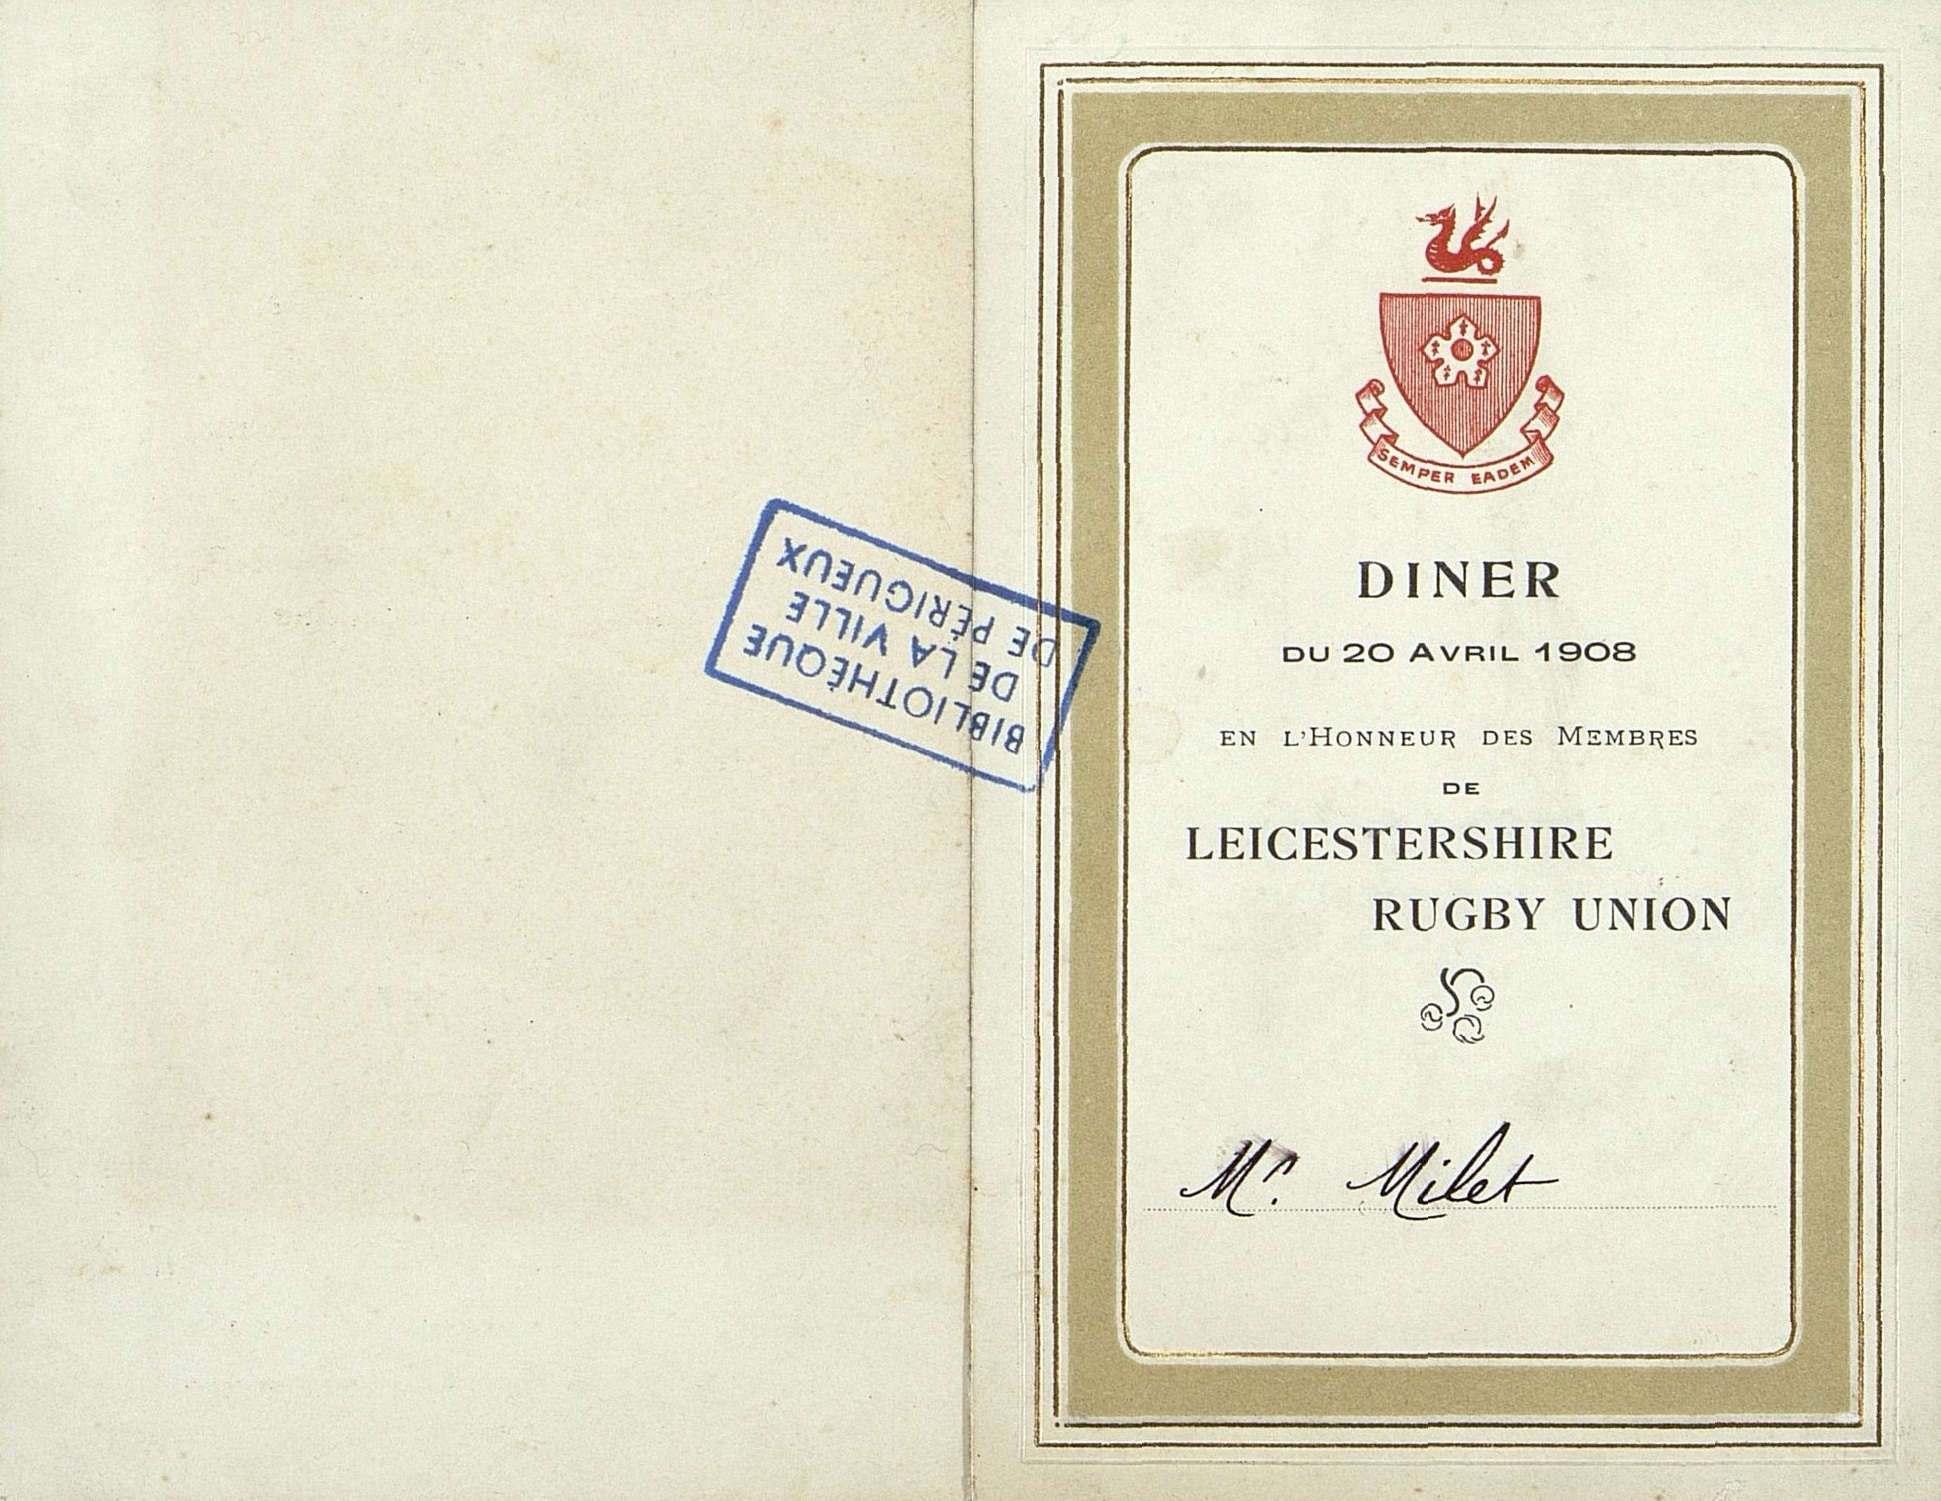 SEMPER EADEM
DINER
DU 20 AVRIL 1908
EN L'HONNEUR DES MEMBRES
DE
LEICESTERSHIRE
RUGBY UNION
Mr. Milet
BIBLIOTHÈQUE
DE LA VILLE
DE PÉRIGUEUX